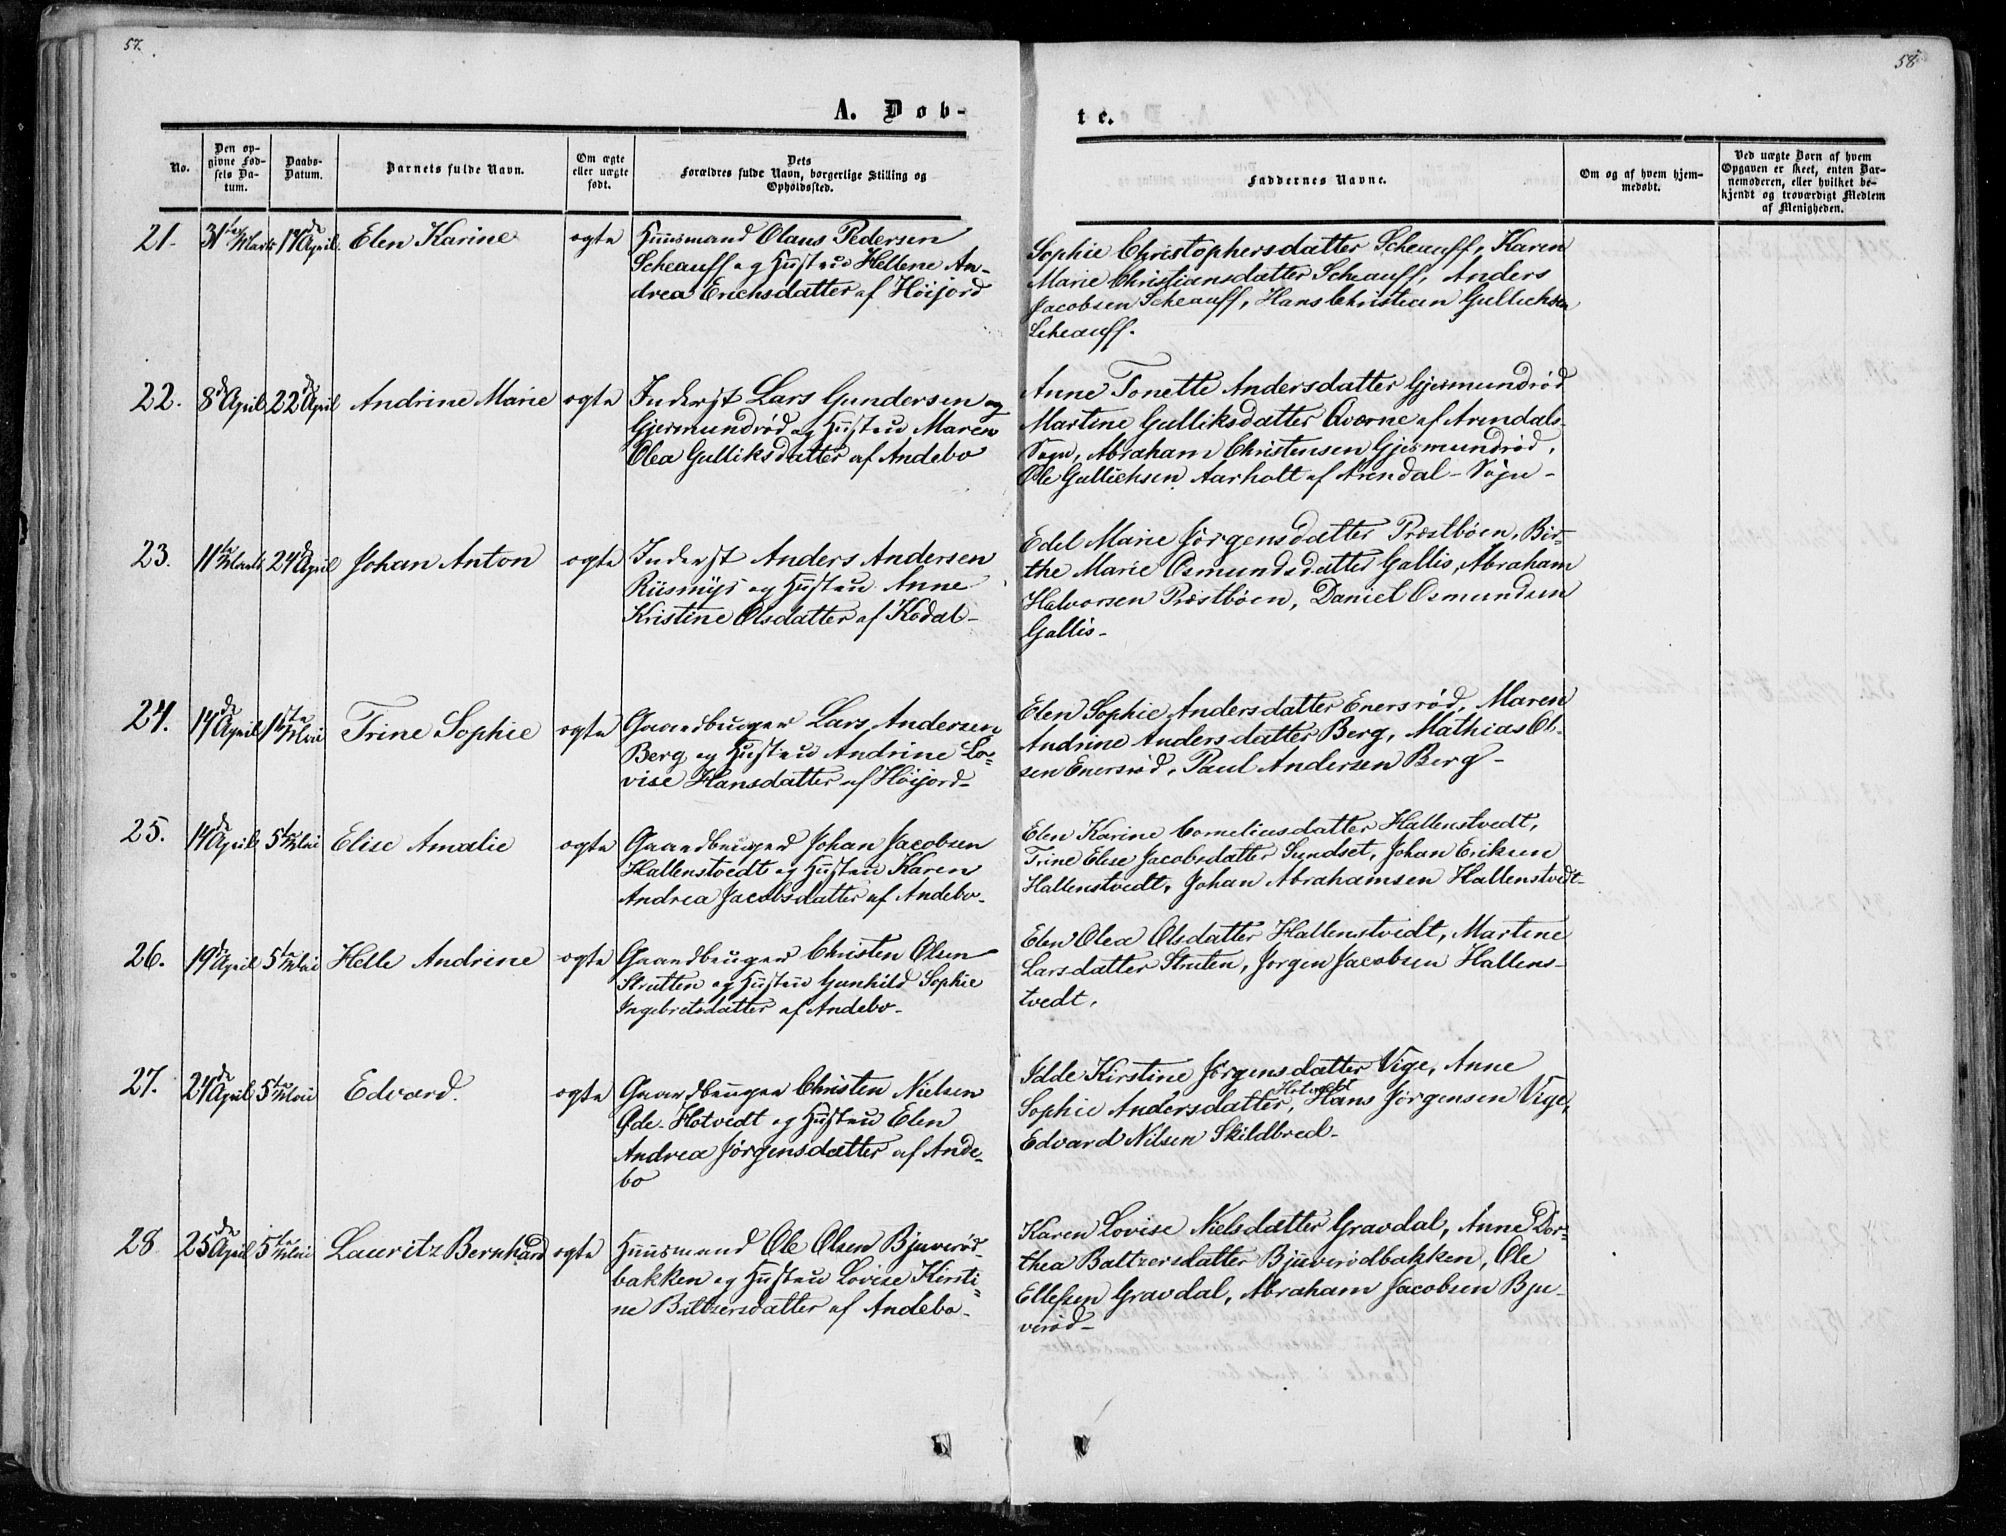 57.
58
A. Døb-
te.
No.
Den op-
givne Fød-
sels Da-
tum.
Daabs-
Datum.
Barnets fulde Navn.
Om ægte
eller uægte
født.
Dets
Forældres fulde Navn, borgerlige Stilling og
Opholdssted.
Faddernes Navne.
Om og af hvem hjem-
medøbt.
Ved uægte Børn af hvem
Opgaven er skeet, enten Bar-
nemoderen, eller hvilket be-
kjendt og troværdigt Medlem
af Menigheden.
21. 31te Marts 17de April. Elen Karine ægte Huusmand Olaus Pedersen
Scheauff og Hustru Hellene An-
drea Erichsdatter af Høijord
Sophie Christophersdatter Scheauff, Karen
Marie Christiansdatter Scheauff, Anders
Jacobsen Scheauff, Hans Christian Gullichsen
Scheauff.
22. 8de April 22de April Andrine Marie ægte Inderst Lars Gundersen
Gjermundrød og Hustru Maren
Olea Gulliksdatter af Andebo
Anne Tonette Andersdatter Gjermundrød
Martine Gulliksdatter Qværne af Arendals
Sogn, Abraham Christensen Gjermundrød,
Ole Gullichsen Aarholt af Arendal-Sogn-
23. 11te Marts 24de April Johan Anton ægte Inderst Anders Andersen
Riismyr og Hustru Anne
Kristine Olsdatter af Kodal-
Edel Marie Jørgensdatter Præstbøen, Bir-
the Marie Osmundsdatter Gallis, Abraham
Halvorsen Præstbøen, Daniel Osmundsen
Gallis-
24. 14de April 1ste Mai Trine Sophie ægte Gaardbruger Lars Andersen
Berg og Hustru Andrine Lo-
vise Hansdatter af Høijord-
Elen Sophie Andersdatter Enersrød, Maren
Andrine Andersdatter Berg, Mathias Ol-
sen Enersrød, Paul Andersen Berg-
25. 14de April 5te Mai Elise Amalie ægte Gaardbruger Johan Jacobsen
Hallenstvedt og Hustru Karen
Andrea Jacobsdatter af Andebo-
Elen Karine Corneliusdatter Hallenstvedt,
Trine Elise Jacobsdatter Sundset, Johan Eriksen
Hallenstvedt, Johan Abrahamsen Hallenstvedt-
26. 19de April 5te Mai Helle Andrine ægte Gaardbruger Christen Olsen
Strutten og Hustru Gunhild Sophie
Ingebretsdatter af Andebo-
Elen Olea Olsdatter Hallenstvedt, Martine
Larsdatter Struten, Jørgen Jacobsen Hallens-
tvedt.
27. 24de April 5te Mai Edvard. ægte Gaardbruger Christen Nielsen
Øde-Hotvedt og Hustru Elen
Andrea Jørgensdatter af Ande-
bo
Idde Kirstine Jørgensdatter Vige, Anne
Hotvedt
Sophie Andersdatter, Hans Jørgensen Vige,
Edvard Nilsen Skildbred-
28 25de April 5te Mai Lauritz Bernhard ægte Huusmand Ole Olsen Bjuverød-
bakken og Hustru Lovise Kirsti-
ne Baltzersdatter af Andebo-
Karen Lovise Nielsdatter Gravdal, Anne Dor-
thea Baltzersdatter Bjuverødbakken, Ole
Ellefsen Gravdal, Abraham Jacobsen Bju-
verød-